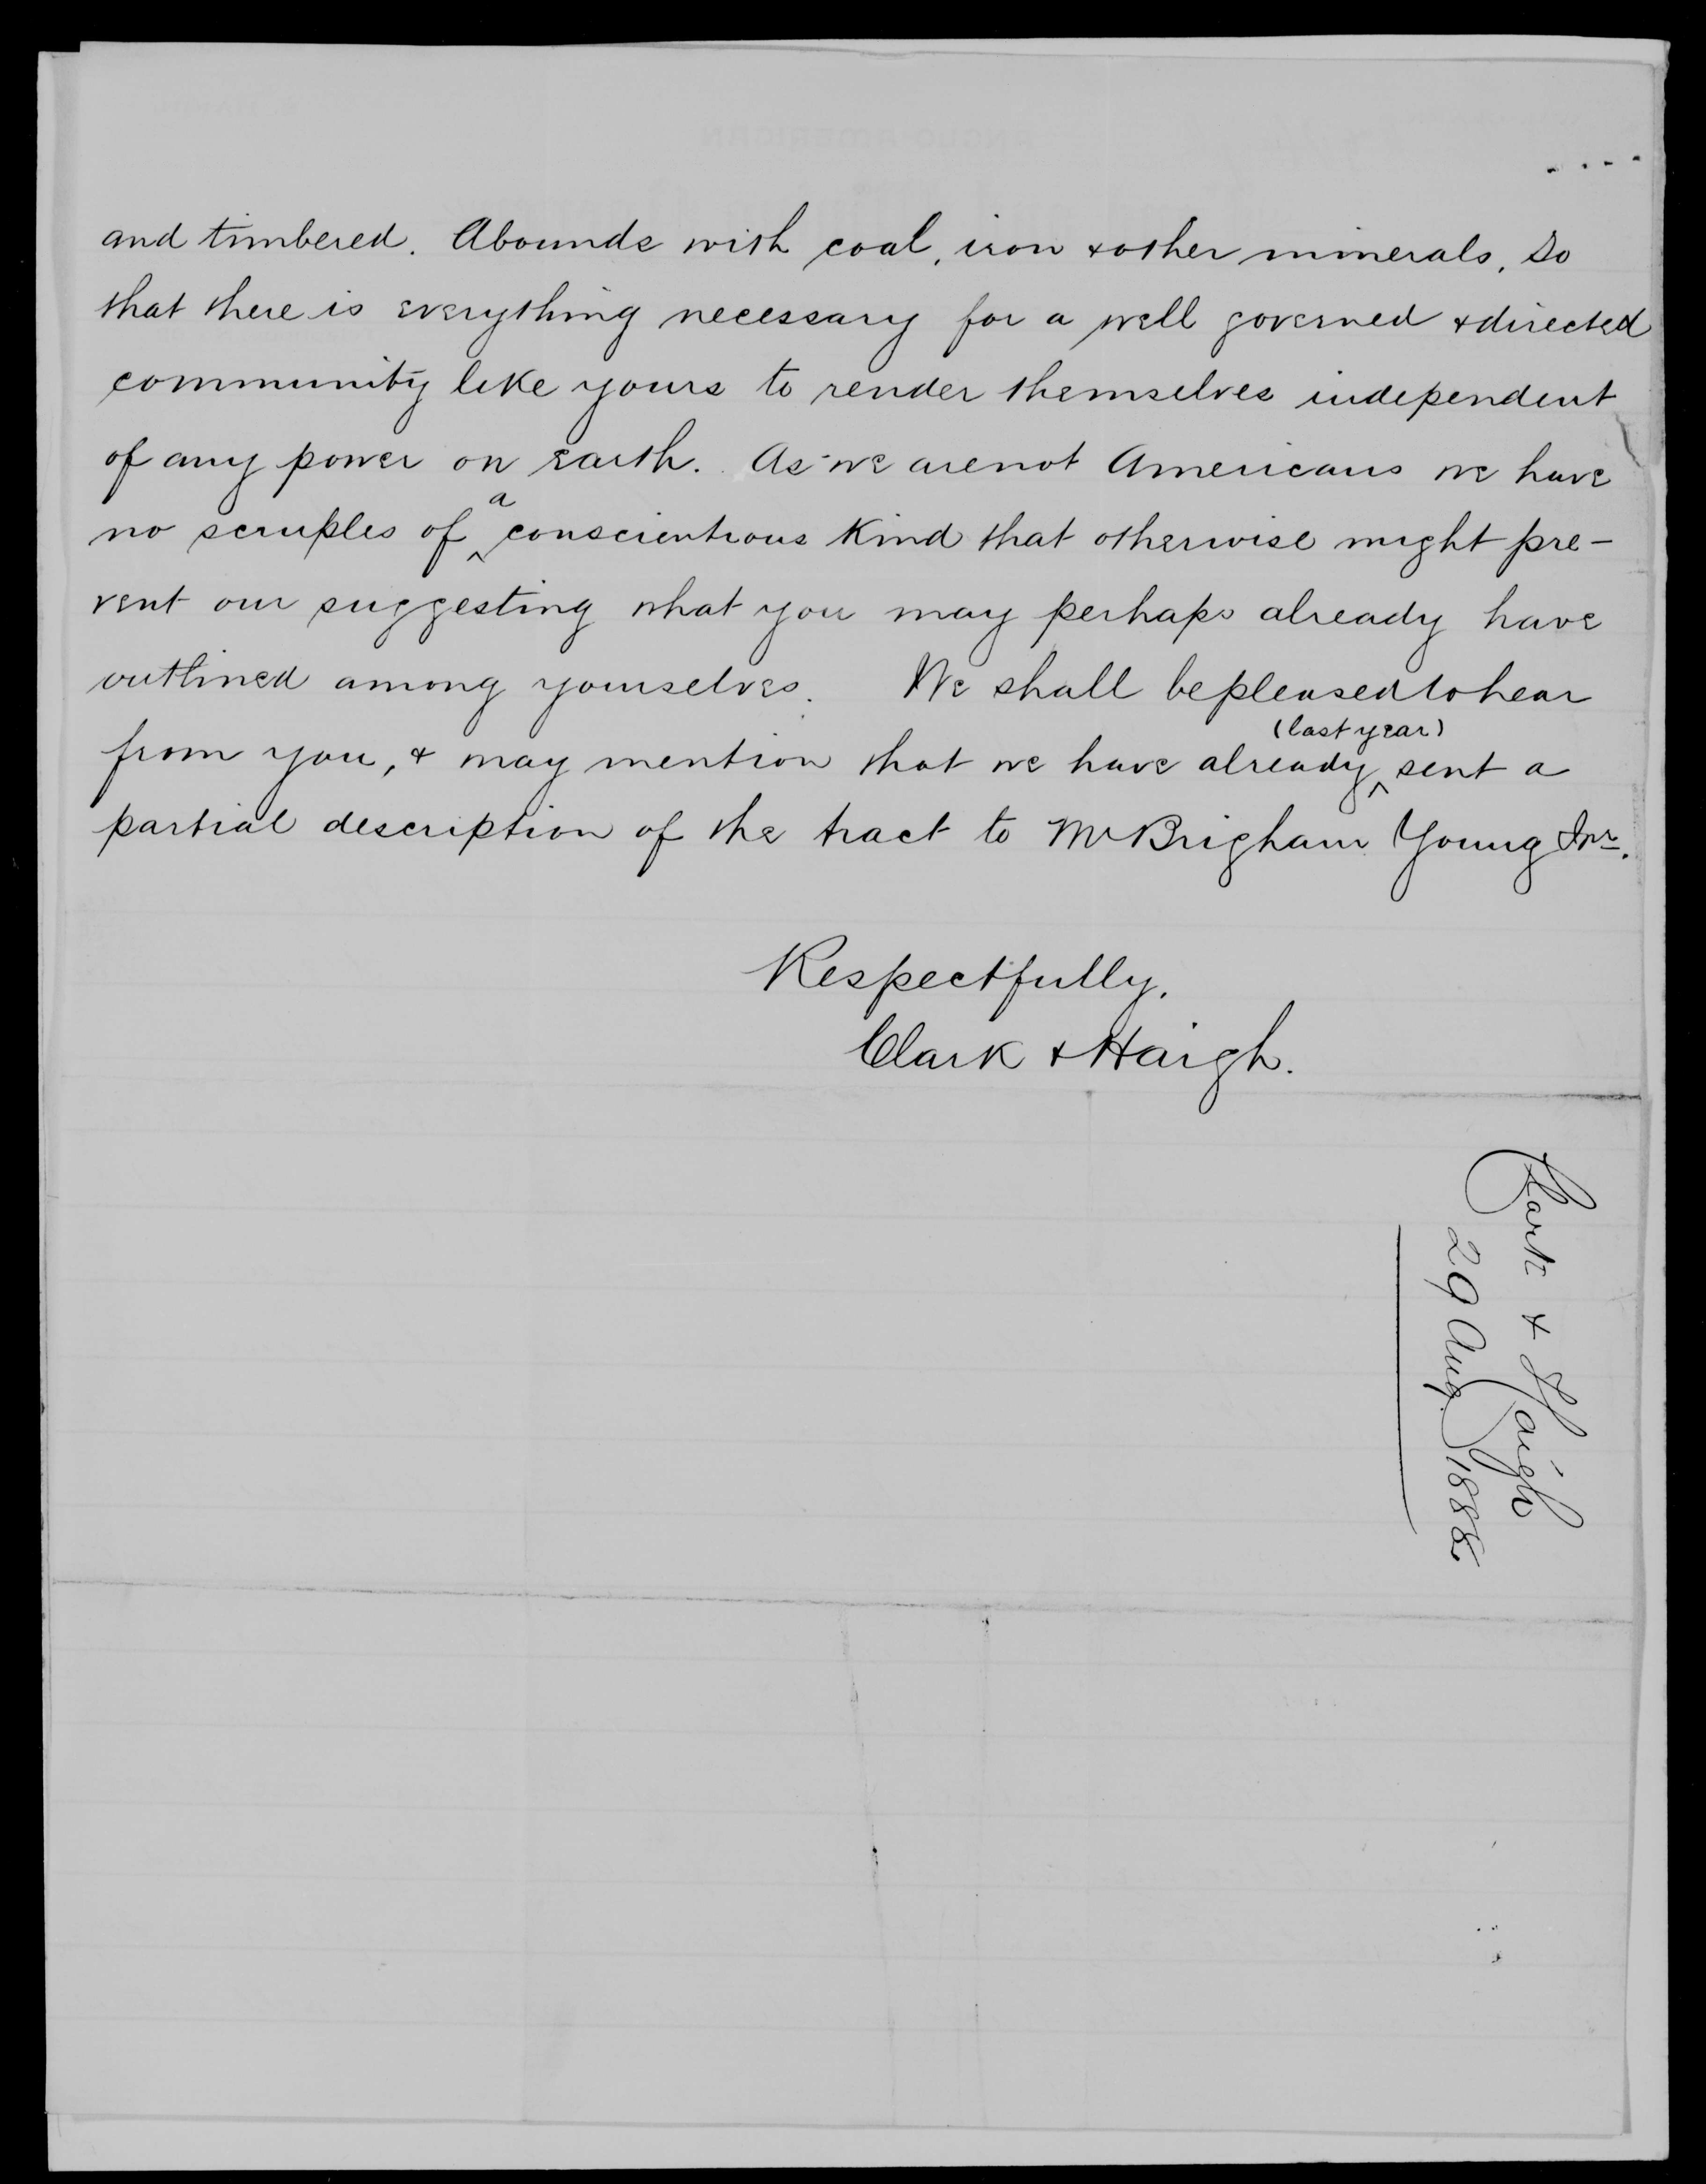 and timbered. Abounds with coal, iron & other minerals, so
that there is everything necessary for a well governed & directed
community like yours to render themselves independent
of any power on earth. As we are not Americans we have
no scruples of ^a conscientious kind that otherwise might pre-
vent our suggesting what you may perhaps already have
outlined among yourselves. We shall be pleased to hear
from you, & may mention that we have already ^(last year) sent a
partial description of the tract to Mr Brigham Young Jnr.
Respectfully,
Clark & Haigh.
Clark & Haigh
29 Aug. 1888.